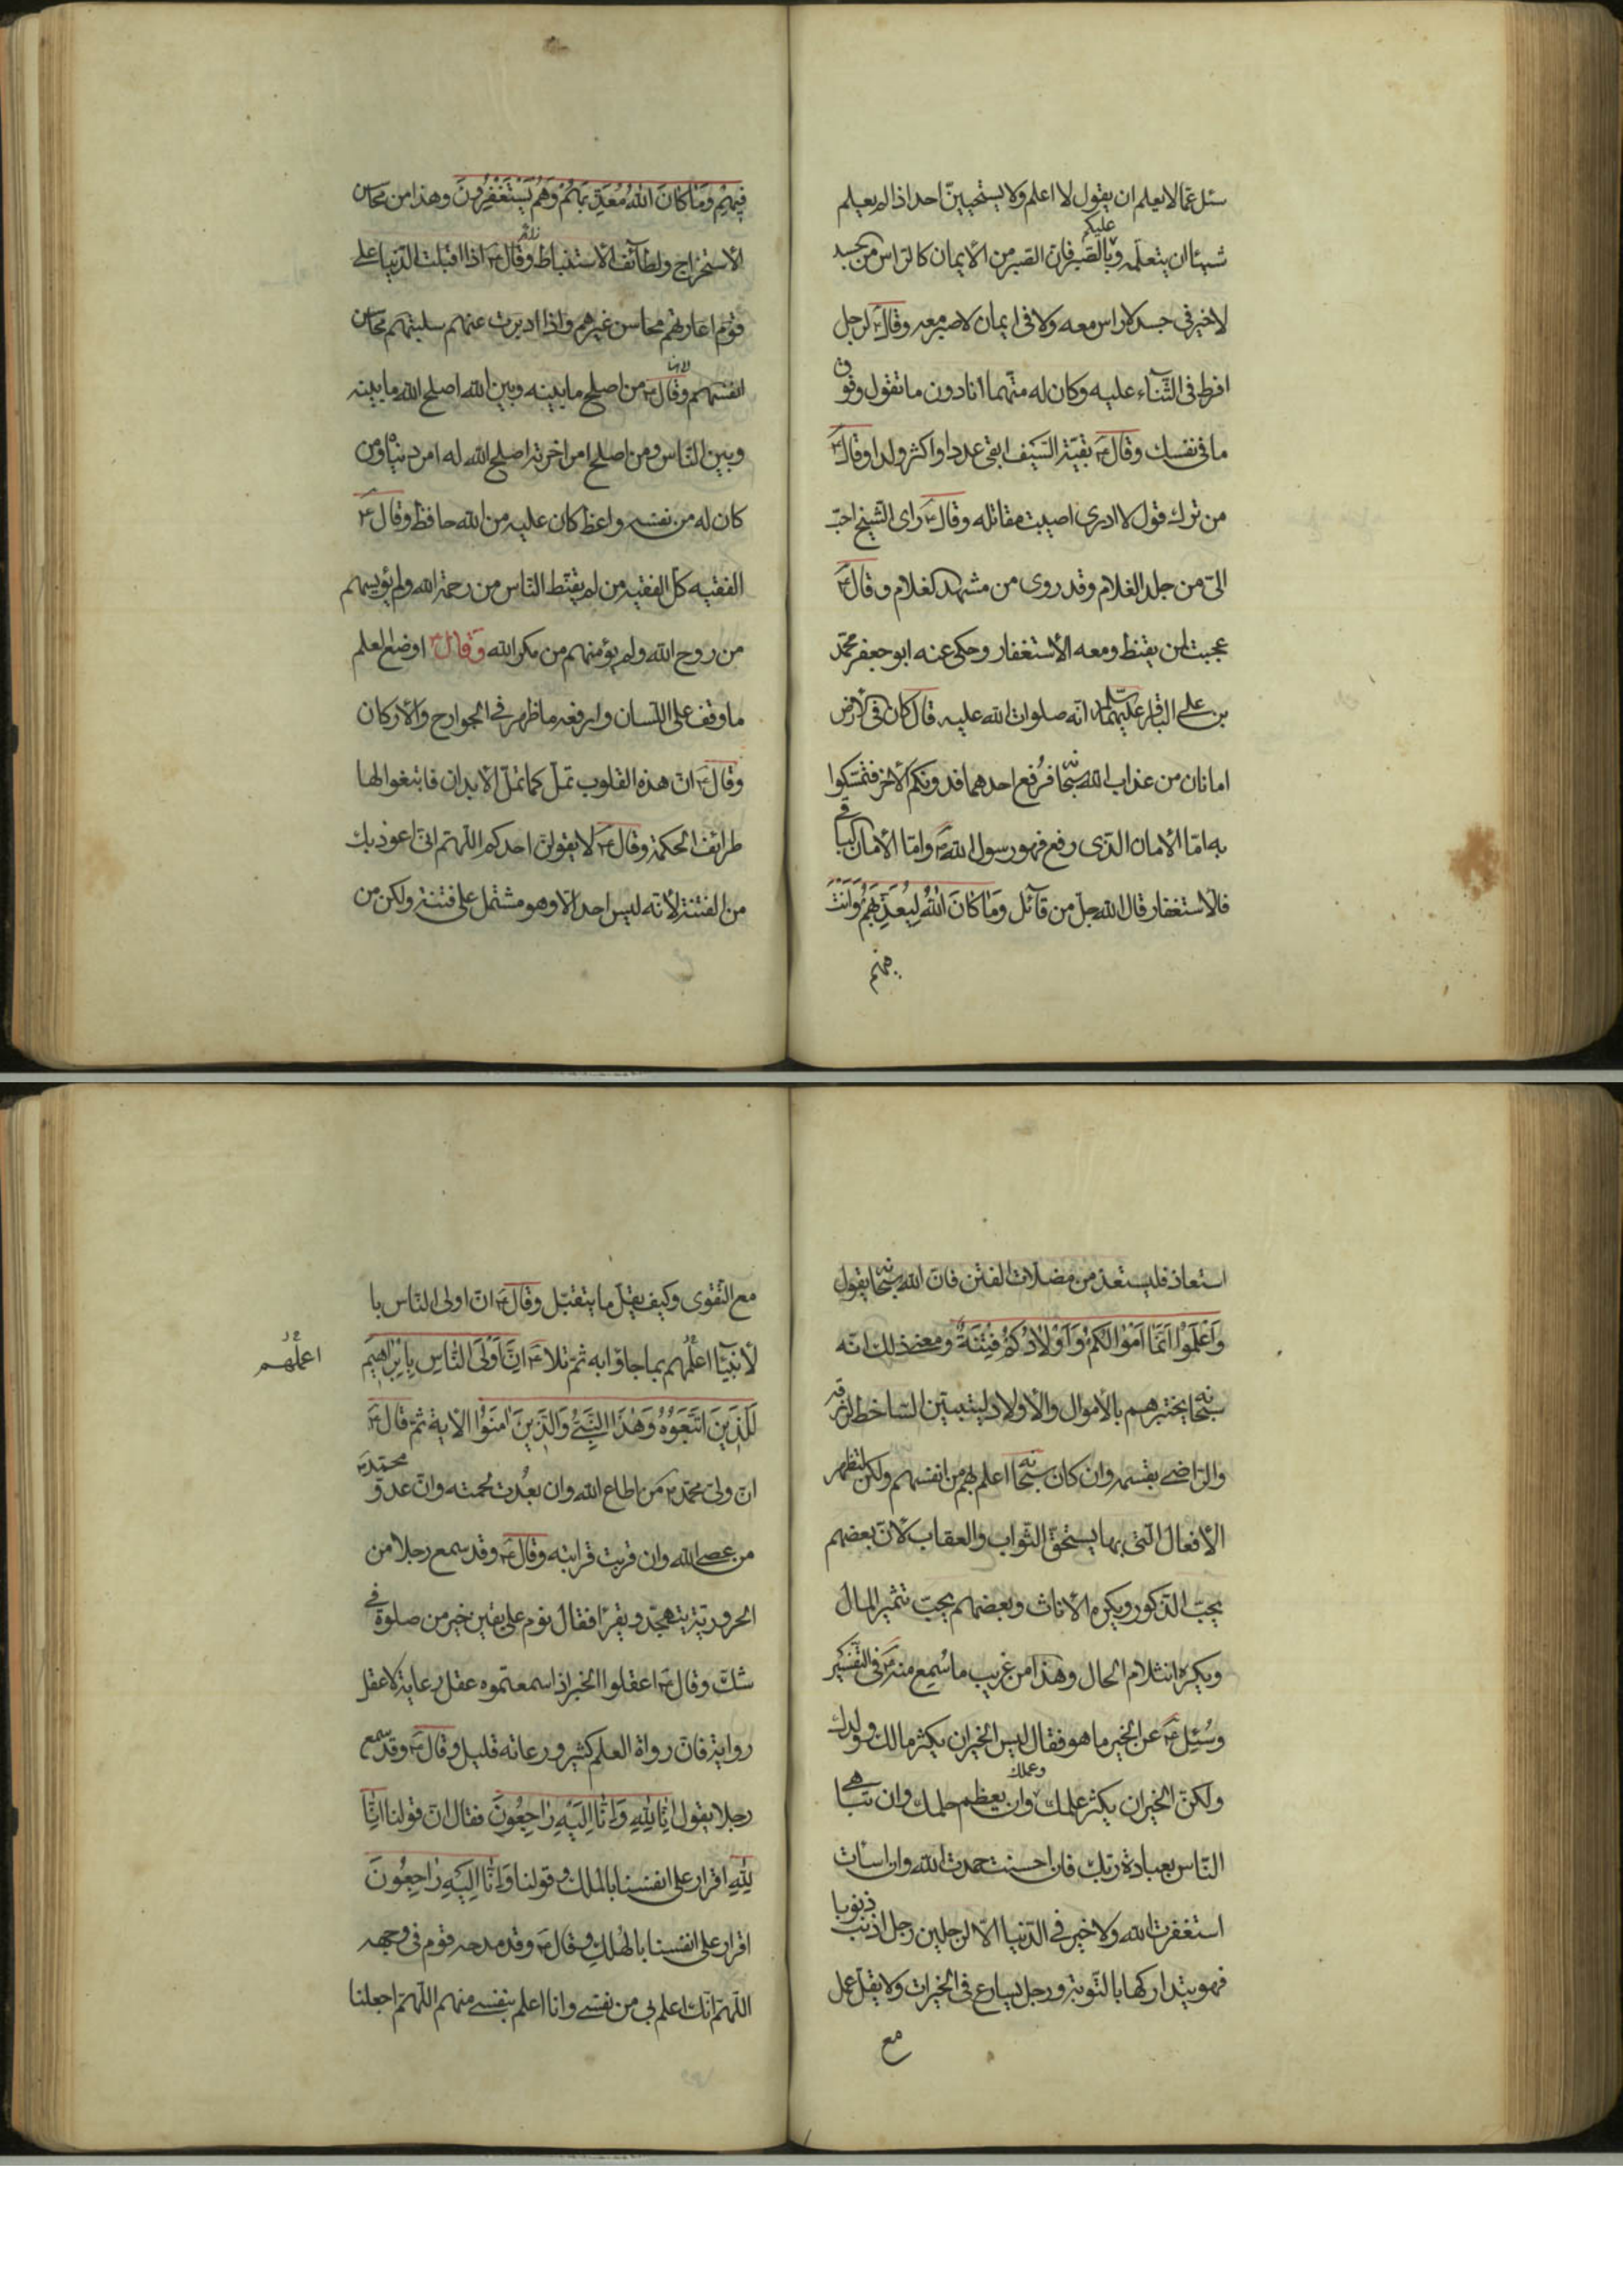 سئل عمّا لا يعلم ان يقول لا اعلم ولا يستحيينّ احد اذا لم يعلم
شيئا ان يتعلّمه و عليكم بالصّبر فانّ الصّبر من الأيمان كالرّاس من جسد
لا خير في جسد لا راس معه ولا في ايمان لا صبر معه وقال ؑ لرجل
افرط في الثّنآء عليه وكان له متّهما انا دون ما تقول وفوق
ما في نفسك وقال ؑ بقيّة السّيف ابقى عددا واكثر ولدا وقال ؑ
من ترك قول لا ادري اصيبت مقاتله وقال ؑ راى الشّيخ احبّ
الىّ من جلد الغلام وقد روى من مشهد الغلام وقال ؑ
عجبت لمن يقنط ومعه الأستغفار وحكى عنه ابو جعفر محمّد
بن علي الباقر عليهما السلم انّه صلوات الله عليه قال كان في الأرض
امانان من عذاب الله سبحانه فرُفع احدهما فدونكم الأخر فتمسّكوا
به امّا الأمان الّذى رفع فهو رسول الله ؐ وامّا الأمان الباقي
فالأستغفار قال الله جلّ من قآئل وَمَا كَانَ اللهُ لِيُعَذِّبَهُمْ وَاَنْتَ
فيهم
فِيهِمْ وَمَا كَانَ اللهُ مُعَذِّبَهُمْ وَهُمْ يَسْتَغْفِرُونَ وهذا من محاسن
الأستخراج ولطآئف الأستنباط وقال ؑ اذا اقبلت الدّنيا على
قوم اعارتهم محاسن غيرهم واذا ادبرت عنهم سلبتهم محاسن
انفسهم وقال ؑ من اصلح ما بينه وبين الله اصلح الله ما بينه
وبين النّاس ومن اصلح امر اخرته اصلح الله له امر دنياه ومن
كان له من نفسه واعظ كان عليه من الله حافظ وقال ؑ
الفقيه كلّ الفقيه من لم يقنّط النّاس من رحمة الله ولم يؤيسهم
من روح الله ولم يؤمنهم من مكر الله وقال ؑ اوضع العلم
ما وقف على اللّسان وارفعه ما ظهر في الجوارح والأركان
وقال ؑ انّ هذه القلوب تملّ كما تملّ الأبدان فابتغوا لها
طرائف الحكمة وقال ؑ لا يقولنّ احدكم اللّهمّ انّى اعوذ بك
من الفتنة لأنّه ليس احد الّا وهو مشتمل على فتنة ولكن من
استعاذ فليستعذ من مضلّات الفتن فانّ الله سبحانه يقول
وَاعْلَمُوا اَنَّمَا اَمْوَالُكُمْ وَاَوْلَادُكُمْ فِتْنَةٌ ومعنى ذلك انّه
سبحانه يختبرهم بالأموال والأولاد ليتبيّن السّاخط لرزقه
والرّاضى بقسمه وان كان سبحانه اعلم بهم من انفسهم ولكن لتظهر
الأفعال الّتى بها يستحقّ الثّواب والعقاب لانّ بعضهم
يحبّ الذّكور ويكره الأناث وبعضهم يحبّ تثمير المال
ويكره انثلام الحال وهذا من غريب ما سُمع منه ؑ في التّفسير
وسُئِل ؑ عن الخير ما هو فقال ليس الخير ان يكثر مالك وولدك
ولكنّ الخير ان يكثر علمك وعملك وان يعظم حلمك وان تباهي
النّاس بعبادة ربّك فان احسنت حمدت الله وان اسأت
استغفرت الله ولا خير في الدّنيا الّا لرجلين رجل اذنب ذنوبا
فهو يتداركها بالتّوبة ورجل يسارع في الخيرات ولا يقلّ عمل
مع
مع التّقوى وكيف يقلّ ما يتقبّل وقال ؑ انّ اولى النّاس با
لأنبيآء اعلمهم بما جاؤا به ثمّ تلا ؑ اِنَّ اَوْلَى النَّاسِ بِاِبْرَاهِيمَ
اعملهم
لَلَّذِينَ اتَّبَعُوهُ وَهَذَا النَّبِيُّ وَالَّذِينَ اٰمَنُوا الأية ثمّ قال ؑ
انّ ولىّ محمّد ؐ من اطاع الله وان بعُدت لحمته وانّ عدوّ محمّد ؐ
من عصى الله وان قربت قرابته وقال ؑ وقد سمع رجلا من
الحروريّة يتهجّد ويقرأ فقال نوم على يقين خير من صلوة في
شكّ وقال ؑ اعقلوا الخبر اذا سمعتموه عقل رعاية لا عقل
رواية فانّ رواة العلم كثير ورعاته قليل وقال ؑ وقد سمع
رجلا يقول اِنَّا لِلهِ وَاِنَّا اِلَيْهِ رَاجِعُونَ فقال انّ قولنا اِنَّا
لِلهِ اقرار على انفسنا بالملك وقولنا وَاِنَّا اِلَيْهِ رَاجِعُونَ
اقرار على انفسنا بالهلك وقال ؑ وقد مدحه قوم في وجهه
اللّهمّ انّك اعلم بي من نفسى وانا اعلم بنفسى منهم اللّهمّ اجعلنا